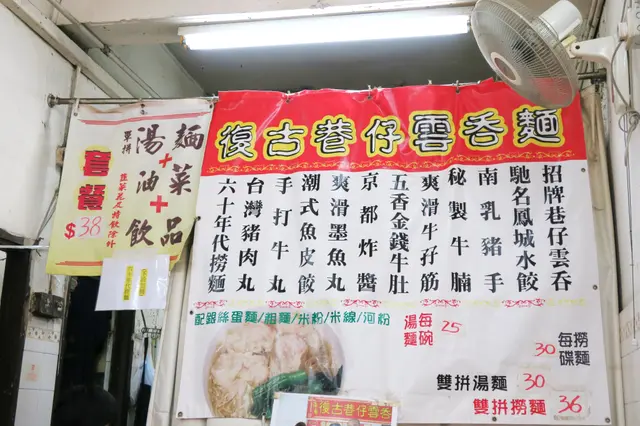 復古巷仔雲吞麵
招牌巷仔雲吞
馳名鳳城水餃
南乳豬手
秘製牛腩
爽滑牛孖筋
五香金錢牛肚
京都炸醬
爽滑墨魚丸
潮式魚皮餃
手打牛丸
台灣豬肉丸
六十年代撈麵
配銀絲蛋麵/粗麵/米粉/米線/河粉
每碗湯麵 25
每碟撈麵 30
雙拼湯麵 30
雙拼撈麵 36
單拼
湯麵
+
油菜
+
飲品
套餐
$38
復古巷仔雲吞